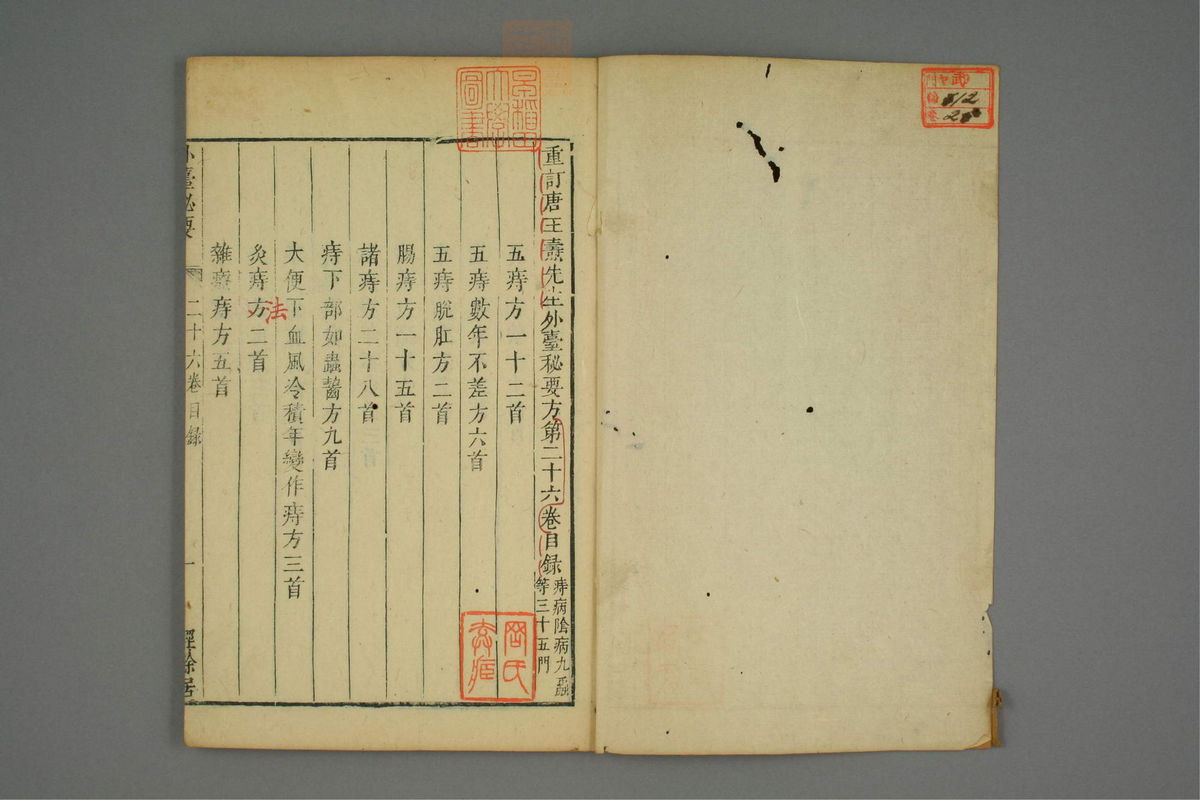 重訂唐王燾先生外臺秘要方第二十六卷目錄
痔病陰病九蟲
等三十五門
五痔方一十二首
五痔數年不差方六首
五痔脫肛方二首
腸痔方一十五首
諸痔方二十八首
痔下部如蟲齧方九首
大便下血風冷積年變作痔方三首
灸痔方二首
法
雜療痔方五首
外臺秘要
二十六卷目錄
一
經餘居
早稻田大學圖書
512